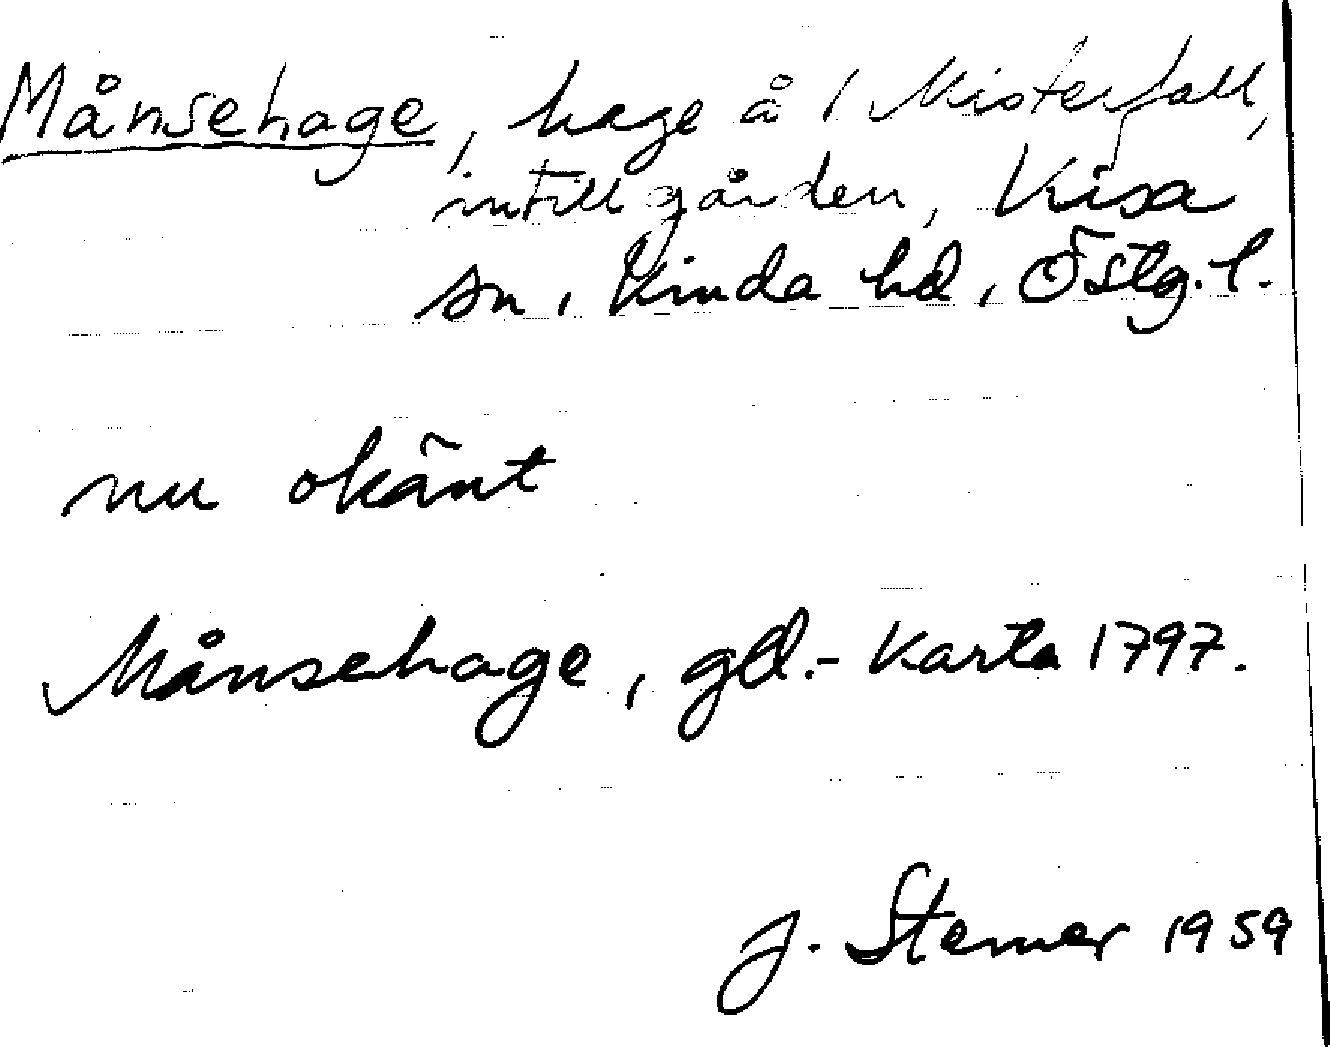 Månsehage, hage å 1 Misterfall,
intill gården, Kisa
sn, Kinda hd, Östg. l.
nu okänt
Månsehage, gd.- Karta 1797.
J. Sterner 1959